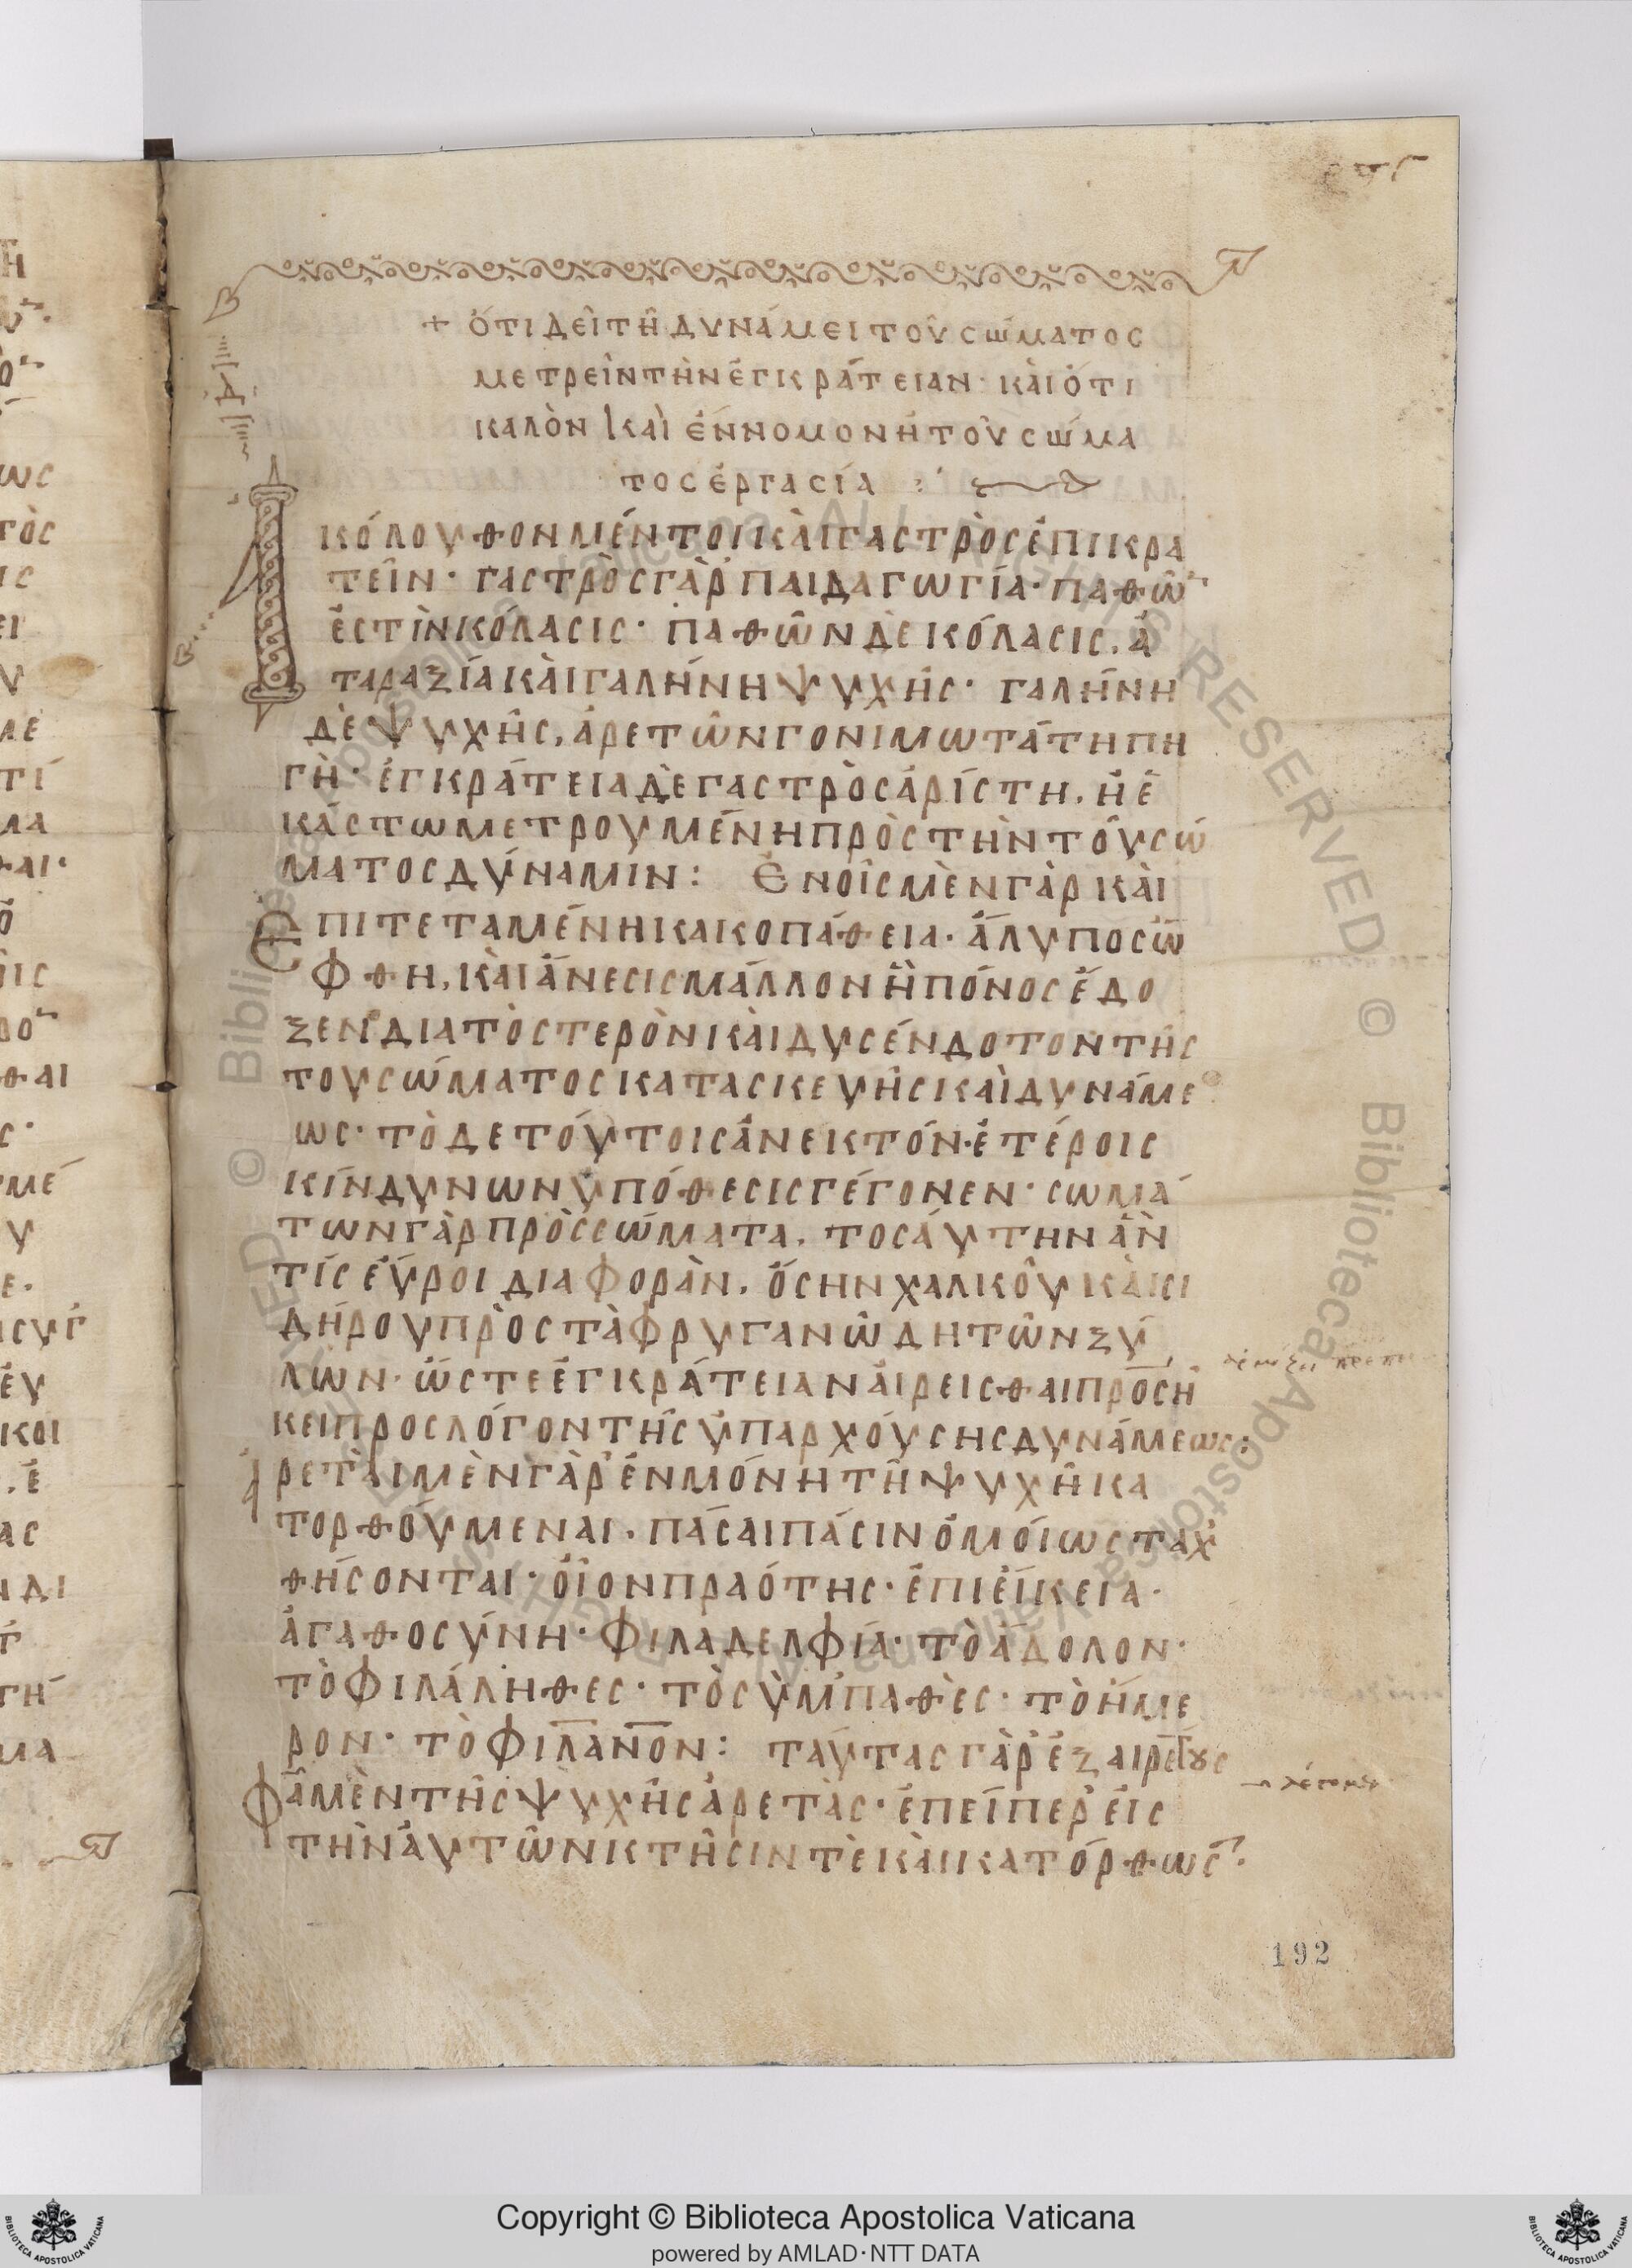 ρπϛ
+ ὍΤΙ ΔΕῖ ΤΗ͂ ΔΥΝΆΜΕΙ ΤΟΥ͂ ΣΏΜΑΤΟΣ
ΜΕΤΡΕῖΝ ΤῊΝ ἘΓΚΡΆΤΕΙΑΝ· ΚΑῚ ὍΤΙ
ΚΑΛῸΝ ΚΑῚ ἘΝΝΟΜΟΝ Ἡ ΤΟΥ͂ ΣΏΜΑ
ΤΟΣ ἘΡΓΑΣΊΑ :
ΑΚΌΛΟΥΘΟΝ ΜΈΝΤΟΙ ΚΑῚ ΓΑΣΤΡῸΣ ἘΠΙΚΡΑ
ΤΕῖΝ· ΓΑΣΤΡῸΣ ΓᾺΡ ΠΑΙΔΑΓΩΓΊΑ· ΠΑΘΩ͂
ἘΣΤῚΝ ΚΌΛΑΣΙΣ· ΠΑΘΩ͂Ν ΔῈ ΚΌΛΑΣΙΣ, Ἀ
ΤΑΡΑΞΊΑ ΚΑῚ ΓΑΛΉΝΗ ΨΥΧΗ͂Σ· ΓΑΛΉΝΗ
ΔῈ ΨΥΧΗ͂Σ, ἈΡΕΤΩ͂Ν ΓΟΝΙΜΩΤΆΤΗ ΠΗ
ΓῊ· ἘΓΚΡΆΤΕΙΑ ΔῈ ΓΑΣΤΡῸΣ ἈΡΊΣΤΗ, Ἡ Ἑ
ΚΆΣΤΩ ΜΕΤΡΟΥΜΈΝΗ ΠΡῸΣ ΤῊΝ ΤΟΥ͂ ΣΏ
ΜΑΤΟΣ ΔΎΝΑΜΙΝ: ἘΝ ΟἿΣ ΜῈΝ ΓᾺΡ ΚΑῚ
ἘΠΙΤΕΤΑΜΈΝΗ ΚΑΚΟΠΆΘΕΙΑ· ἌΛΥΠΟΣ Ὤ
ΦΘΗ, ΚΑῚ ἌΝΕΣΙΣ ΜΆΛΛΟΝ Ἢ ΠΌΝΟΣ ἜΔΟ
ΞΕΝ ΔΙΑ ΤῸ ΣΤΕΡῸΝ ΚΑῚ ΔΥΣΈΝΔΟΤΟΝ ΤΗ͂Σ
ΤΟΥ ΣΏΜΑΤΟΣ ΚΑΤΑΣΚΕΥΗ͂Σ ΚΑῚ ΔΥΝΆΜΕ
ΩΣ· ΤῸ ΔΕ ΤΟΎΤΟΙΣ ἈΝΕΚΤΌΝ· ἙΤΈΡΟΙΣ
ΚΊΝΔΥΝΩΝ ὙΠΌΘΕΣΙΣ ΓΈΓΟΝΕΝ· ΣΩΜΆ
ΤΩΝ ΓᾺΡ ΠΡῸΣ ΣΏΜΑΤΑ, ΤΟΣΑΎΤΗΝ ἊΝ
ΤΊΣ ΕὝΡΟΙ ΔΙΑΦΟΡᾺΝ, ὍΣΗΝ ΧΑΛΚΟΥ͂ ΚΑῚ ΣΙ
ΔΉΡΟΥ ΠΡῸΣ ΤᾺ ΦΡΥΓΑΝΏΔΗ ΤΩ͂Ν ΞΎ
ΛΩΝ· ὭΣΤΕ ἘΓΚΡΆΤΕΙΑΝ ἈΙΡΕΙΣΘΑΙ ΠΡΟΣΗ͂
ΚΕΙ ΠΡΟΣ ΛΌΓΟΝ ΤΗ͂Σ ὙΠΑΡΧΟΎΣΗΣ ΔΥΝΆΜΕΩΣ:
ἈΡΕΤΑῚ ΜῈΝ ΓᾺΡ ἘΝ ΜΌΝΗ ΤΗ͂ ΨΥΧΗ͂ ΚΑ
ΤΟΡΘΟΎΜΕΝΑΙ, ΠΆΣΑΙ ΠΆΣΙΝ ὉΜΟΊΩΣ ΤΑΧ
ΘΉΣΟΝΤΑΙ· ΟἿΟΝ ΠΡΑΌΤΗΣ· ἘΠΙΕΊΚΕΙΑ·
ἈΓΑΘΟΣΎΝΗ· ΦΙΛΑΔΕΛΦΊΑ· ΤῸ ἌΔΟΛΟΝ·
ΤῸ ΦΙΛΆΛΗΘΕΣ· ΤῸ ΣΥΜΠΑΘῈΣ· ΤῸ ἭΜΕ
ΡΟΝ· ΤῸ ΦΙΛΑΝΟΝ: ΤΑΎΤΑΣ ΓᾺΡ ἘΞΑΙΡΈΤΟΥΣ
ΦΑΜῈΝ ΤΗ͂Σ ΨΥΧΗ͂Σ ἈΡΕΤᾺΣ· ἘΠΕΊΠΕΡ ἘΙΣ
ΤῊΝ ἈΥΤΩ͂Ν ΚΤΗ͂ΣΙΝ ΤῈ ΚΑῚ ΚΑΤΌΡΘΩΣ
192
Copyright © Biblioteca Apostolica Vaticana
powered by AMLAD·NTT DATA